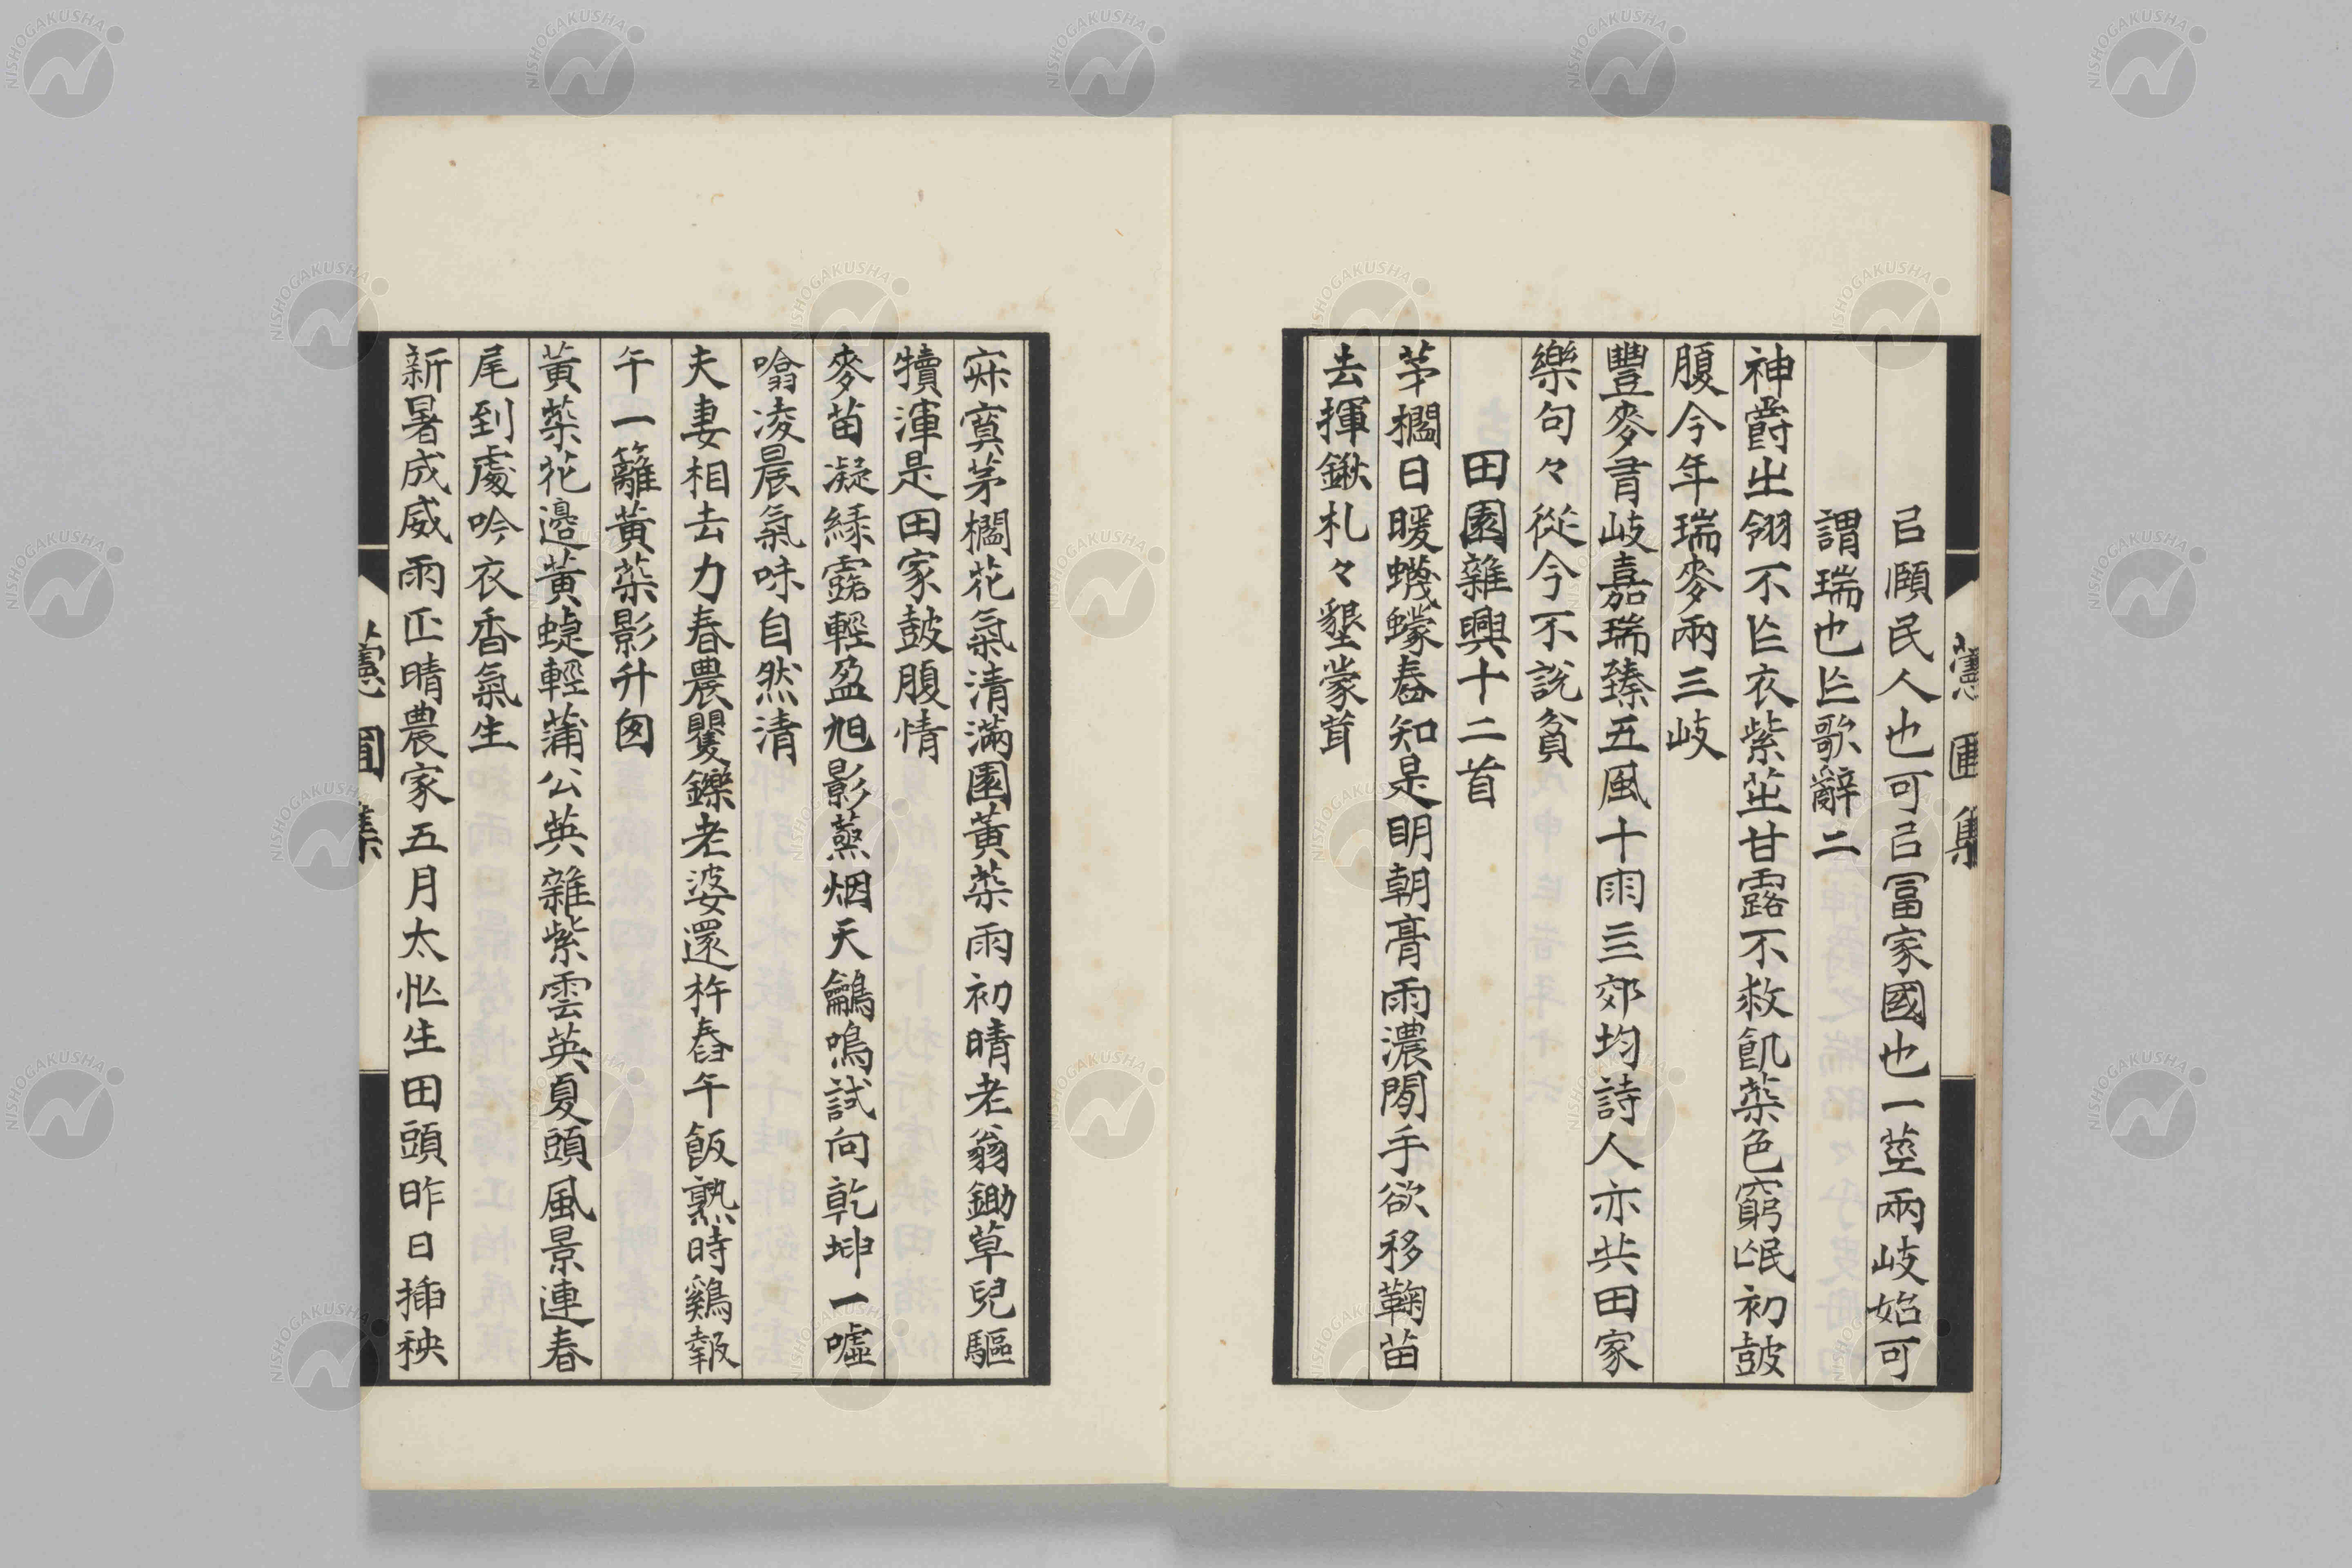 㠯願民人也可㠯冨家國也一莖兩岐始可
謂瑞也亾歌辭二
神爵出翎不亾衣紫芝甘露不救飢菜色窮氓初鼓
腹今年瑞麥兩三岐
豐麥青岐嘉瑞臻五風十雨三郊均詩人亦共田家
樂句々從今不說貧
田園雜興十二首
茅櫩日暖蠛蠓舂知是明朝膏雨濃閒手欲移鞠苗
去揮鍬札々墾蒙茸
寂寞茅櫩花氣清滿園黃菜雨初晴老翁鋤草兒驅
犢渾是田家鼓腹情
麥苗凝綠露輕盈旭影蒸烟天鸙鳴試向乾坤一噓
噏凌晨氣味自然清
夫妻相去力春農矍鑠老婆還杵舂午飯熟時鷄報
午一籬黃菜影升囱
黃菜花邊黃蜨輕蒲公英雜紫雲英夏頭風景連春
尾到處吟衣香氣生
新暑成威雨正晴農家五月太忙生田頭昨日揷秧
圃集
NISHOGAKUSHA